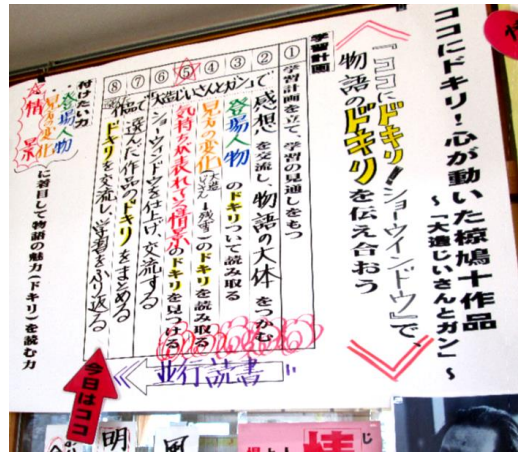 ココにドキリ！心が動いた椋鳩十作品
～「大造じいさんとガン」～
『ココにドキリ！ショーウインドウ』で、
物語のドキリを伝え合おう
学習計画
① 学習計画を立て、学習の見通しをもつ
② 感想を交流し、物語の大体をつかむ
「大造じいさんとガン」で
③ 登場人物のドキリついて読み取る
④ 見方の変化(大造じいさん→残雪)のドキリを読み取る
⑤ 気持ちが表れる情景のドキリを見つける
⑥ ショーウインドウを仕上げ、交流する
⑦ 作品で選んだ作品のドキリをまとめる
⑧ ドキリを交流し、学習をふり返る
付けたい力
・登場人物
・見方の変化
・情景
に着目して物語の魅力(ドキリ)を読む力
並行読書
今日はココ
明
風
情
じ